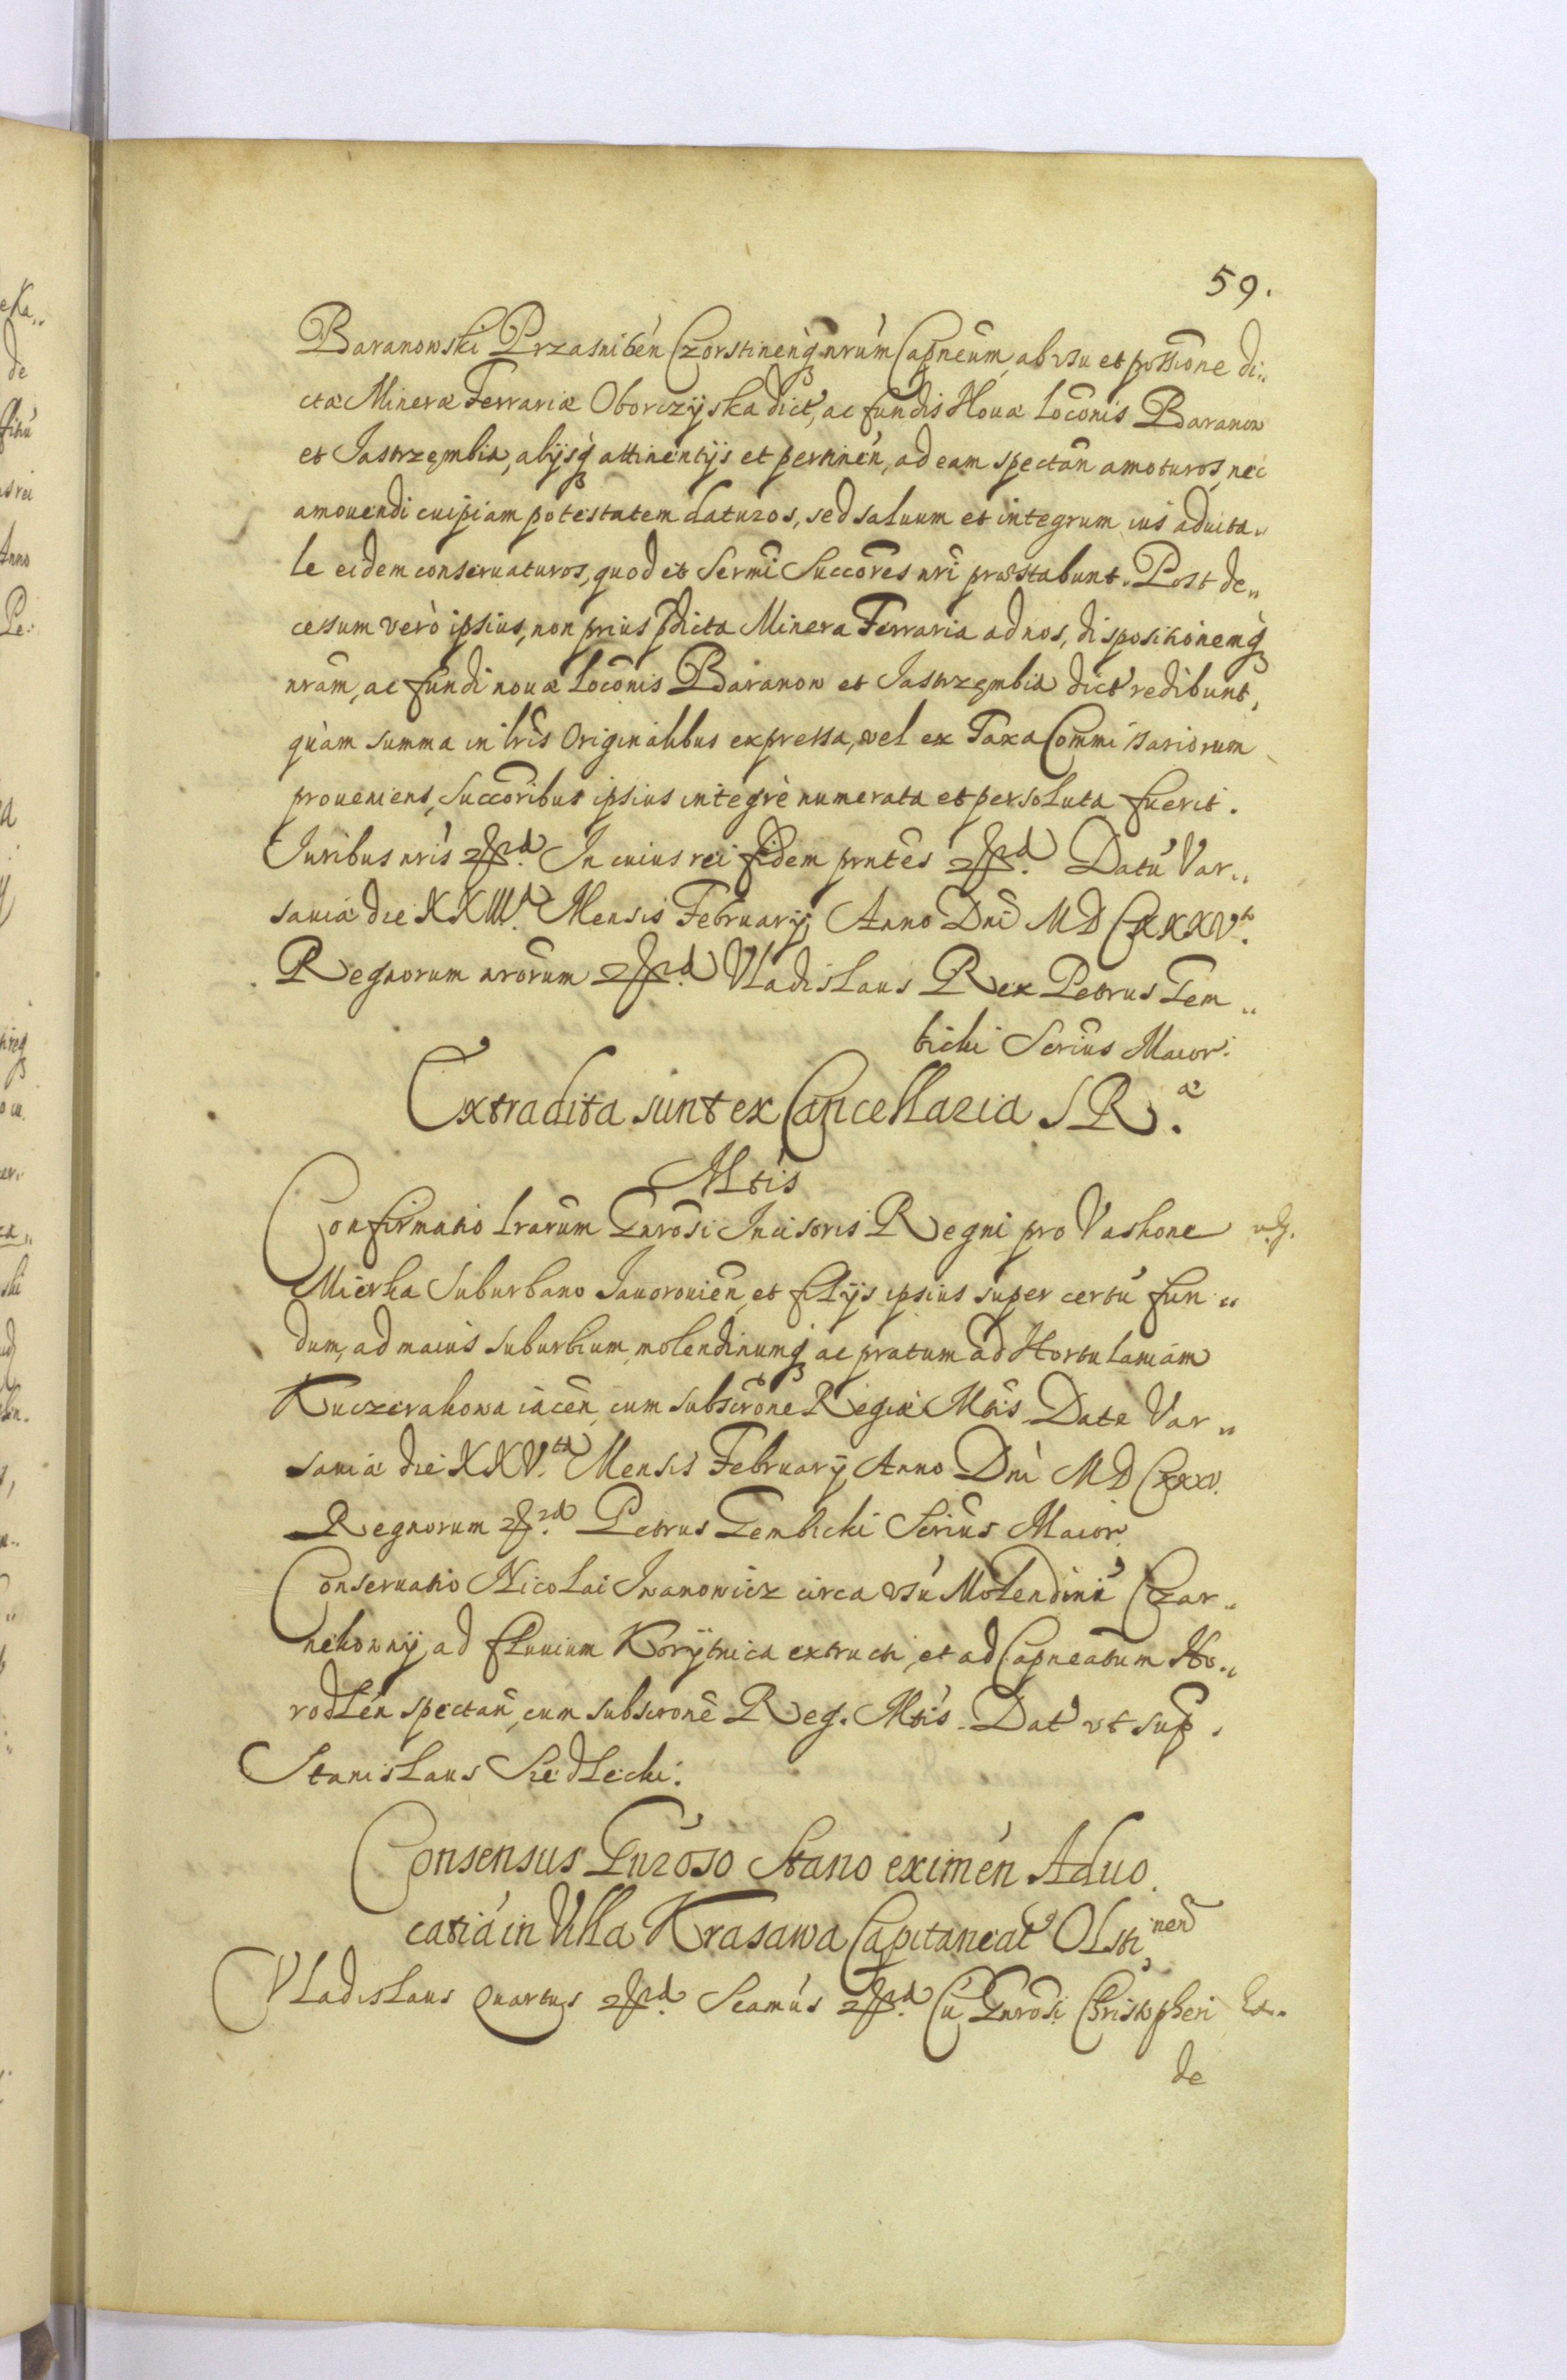 59.
Baranowski Przasnibén Czorstinénq nrúm Capneūm, ab vsu et possione di„
ctæ Mineræ Ferrariæ Oborczyska dict, ac fundis Nouæ Loc̃onis Baranow
et Jastrzęmbia, alijsq attinentijs et pertinén, ad eam spectãn amoturos, nec
amouendi cuipiam potestatem daturos, sed saluum et integrum ius aduita„
le eidem conseruaturos, quod et Sermi Succores nri præstabunt. Post de„
cessum verò ipsius, non prius pdicta Minera Ferraria ad nos, dispositionemq
nram, ac fundi nouæ Loconis Baranow et Jastrzęmbia dict redibunt,
quàm summa in lris Originalibus expressa, vel ex Taxa Commissariorum
proueniens, Succoribus ipsius integrè numerata et persoluta fuerit.
Juribus nris In cuius rei fidem prntes Datú Var„
sauiæ die XXIII. Mensis February Anno Dni MDCXXXV.
Regnorum nrorum Vladislaus Rex Petrus Gem„
bicki Secrius Maior.
Extradita sunt ex Cancellaria S R æ
Mtis
Confirmatio lrarum Gnrosi Incisoris Regni pro Vashone
Mierka Suburbano Jauorouien, et filijs ipsius super certú fun„
dum, ad maius suburbium, molendinumq ac pratum ad Hortulaniam
Kuczerakowa iacén, cum subscrone Regiæ Mtis Datæ Var„
sauiæ die XXV.ta Mensis February Anno Dni MDCXXXV.
Regnorum Petrus Gembicki Secrius Maior
Conseruatio Nicolai Jwanowicz circa vsú Molendini Czar„
nekowny, ad fluuium Korytnica extructi, et ad Capneatum Ho„
rodlén spectan, cum subscrone Reg. Mtis. Dat vt sup.
Stanislaus Siedlecki.
Consensus Gnroso Stano eximén Aduo
catiá in Villa Krasawa Capitaneat Olsti nen
Vladislaus Quartus Scamús Cú Gnrosi Christopheri Ex„
de